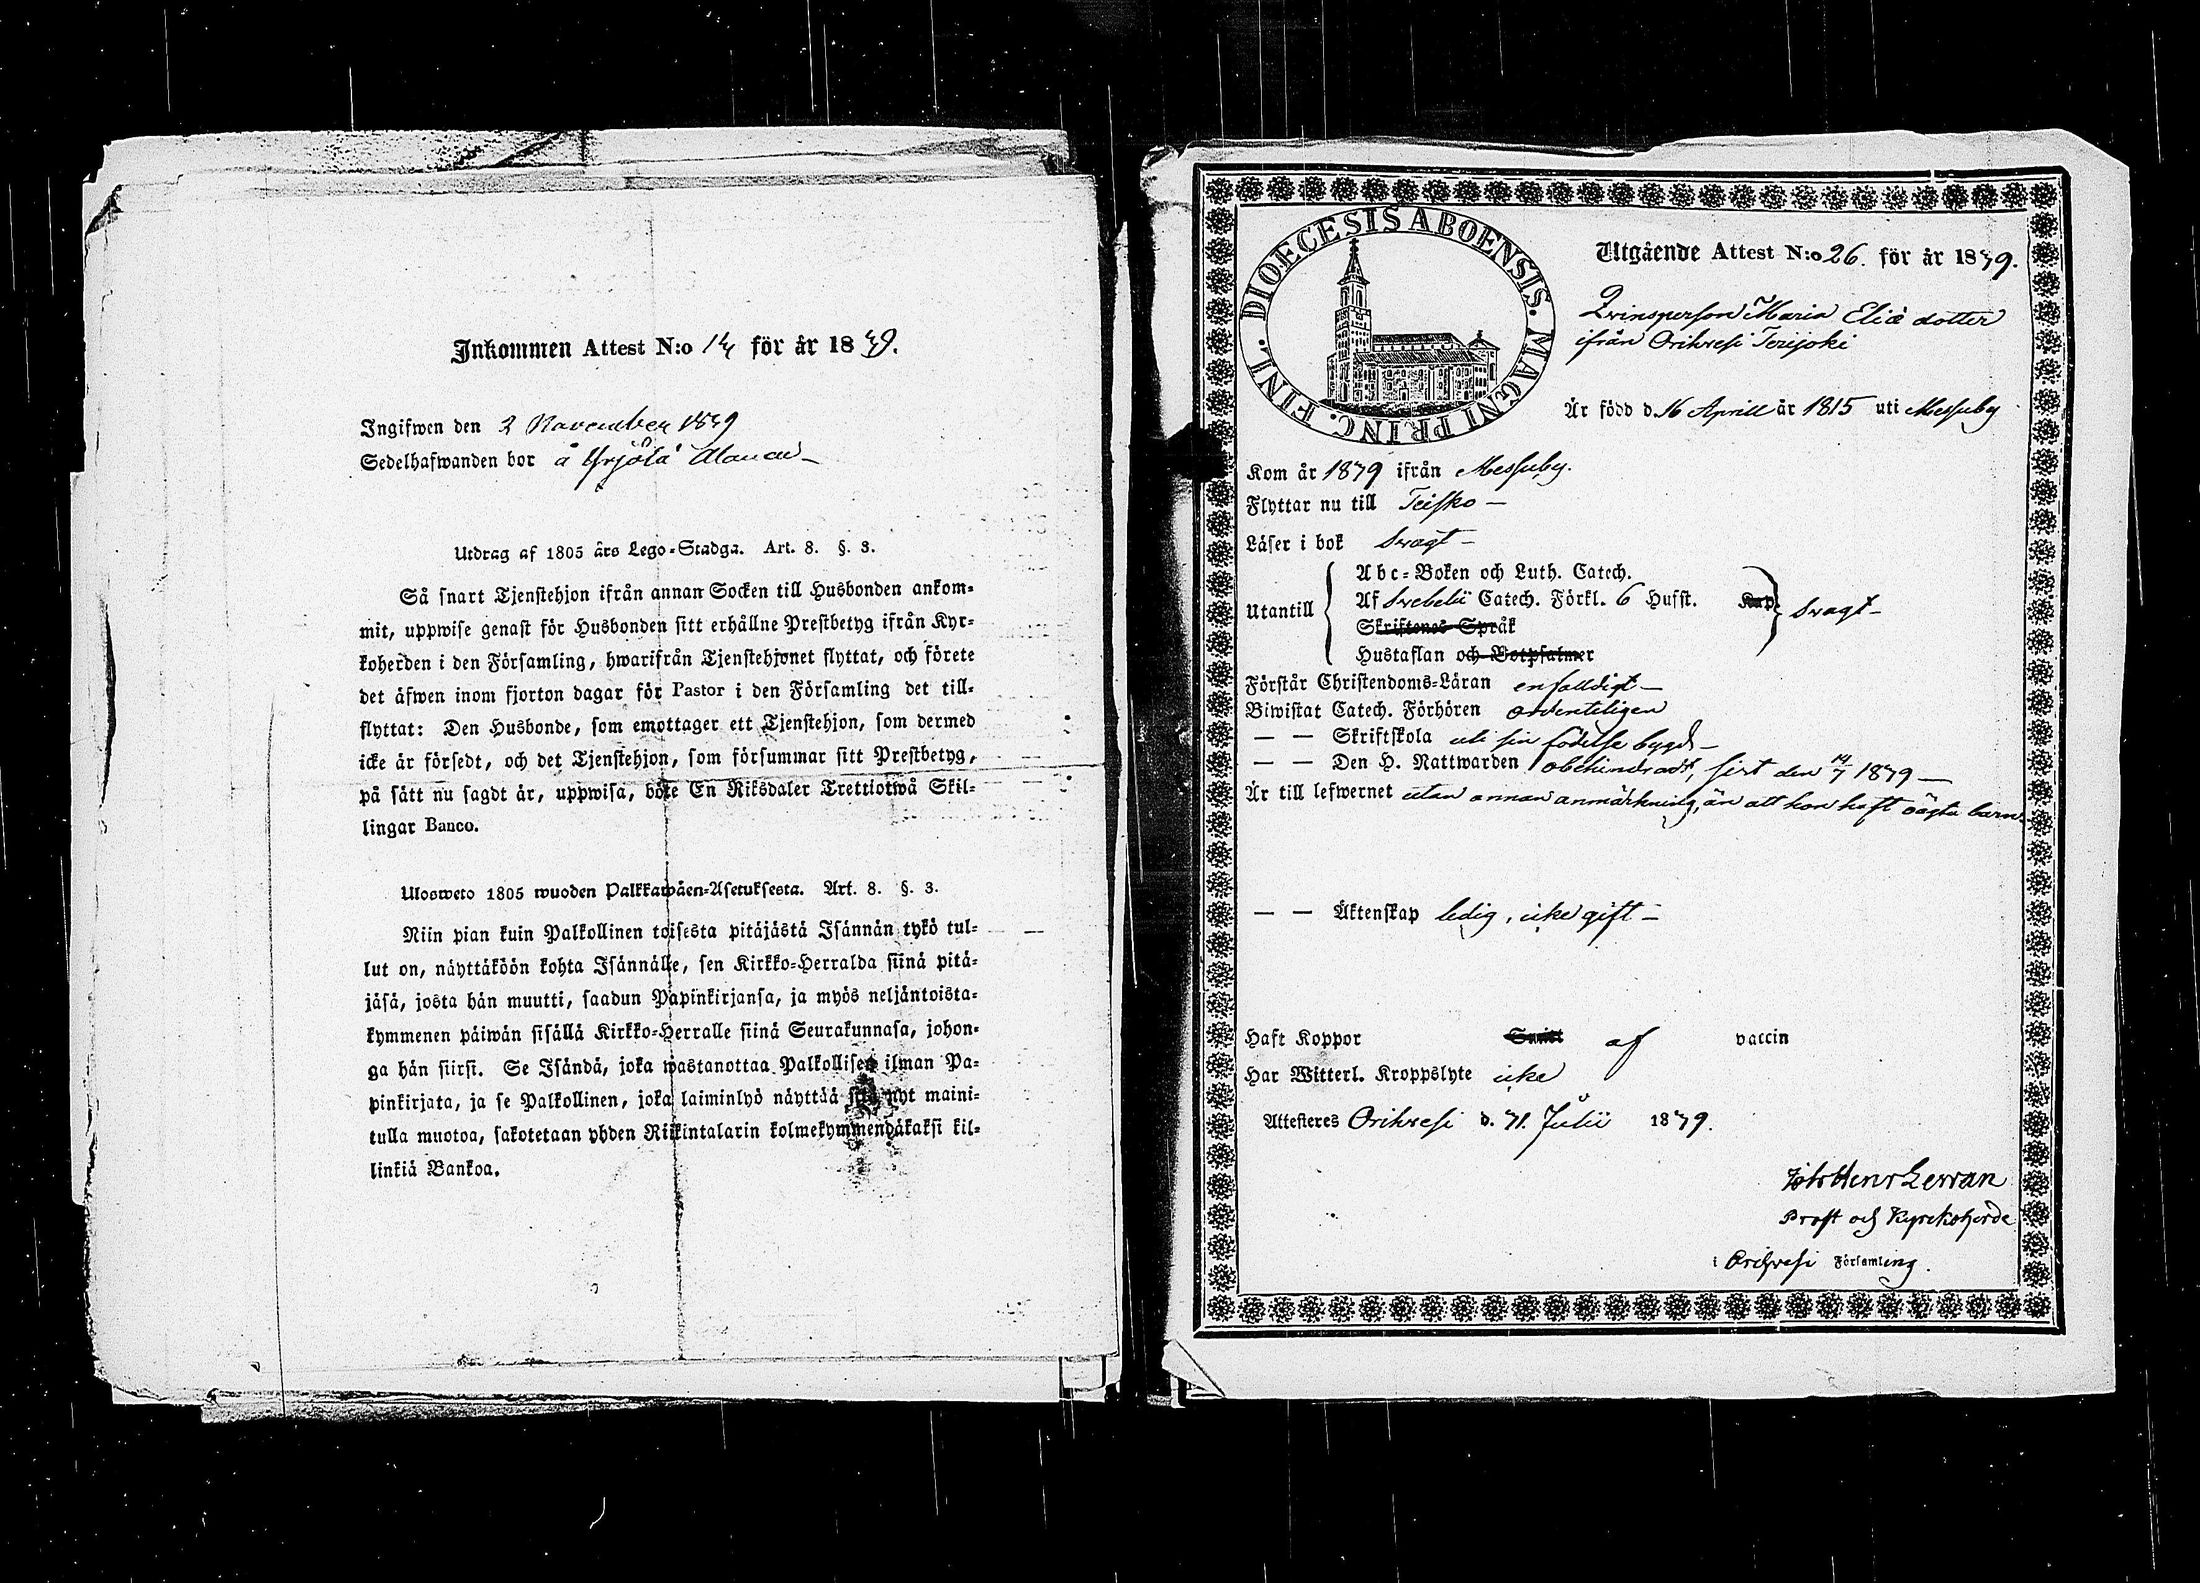 Inkommen Attest N:o 14 för år 1839.
Ingifwen den 2 November 1839
Sedelhafwanden bor å Yrjölä
Utdrag af 1805 års Lego-Stadga. Art. 8. §. 3.
Så snart Tjenstehjon ifrån annan Socken till Husbonden ankom-
mit, uppwise genast för Husbonden sitt erhållne Prestbetyg ifrån Kyr-
koherden i den Församling, hwarifrån Tjenstehjonet flyttat, och förete
det äfwen inom fjorton dagar för Pastor i den Församling det till-
flyttat: Den Husbonde, som emottager ett Tjenstehjon, som dermed
icke är försedt, och det Tjenstehjon, som försummar sitt Prestbetyg,
på sätt nu sagdt är, uppwisa, böte En Riksdaler Trettiotwå Skil-
lingar Banco.
Ulosweto 1805 wuoden Palkkawäen-Asetuksesta. Art. 8. §. 3.
Niin pian kuin Palkollinen toisesta pitäjästä Isännän tykö tul-
lut on, näyttäköön kohta Isännälle, sen Kirkko-Herralda siinä pitä-
jäsä, josta hän muutti, saadun Papinkirjansa, ja myös neljäntoista-
kymmenen päiwän sisällä Kirkko-Herralle siinä Seurakunnasa, johon-
ga hän siirsi. Se Isändä, joka wastanottaa Palkollisen ilman Pa-
pinkirjata, ja se Palkollinen, joka laiminlyö näyttää sitä nyt maini-
tulla muotoa, sakotetaan yhden Riikintalarin kolmekymmendäkaksi kil-
linkiä Bankoa.
DIOECESIS ABOENSIS. MAGNI PRINC. FINL.
Utgående Attest N:o 26. för år 1839.
Qvinsperson Maria Eliæ dotter
ifrån Orihvesi Terijoki
Är född d. 16 Aprill år 1815 uti Messuby
Kom år 1839 ifrån Messuby.
Flyttar nu till Teisko –
Läser i bok Svagt –
Utantill
Abc-Boken och Luth. Catech.
Af Svebelii Catech. Förkl. 6 Hufst. Kap
Skriftenes Språk
Hustaflan och Botpsalmer
Svagt –
Förstår Christendoms-Läran enfalldigt –
Biwistat Catech. Förhören ordenteligen
— — Skriftskola uti sin födelse bygd –
— — Den H. Nattwarden obehindradt, sist den 14/7 1839 —
Är till lefwernet utan annan anmärkning, än att hon haft oägta barn.
— — Äktenskap ledig, icke gift –
Haft Koppor af vaccin
Har Witterl. Kroppslyte icke
Attesteres Orihvesi d. 31. Julii 1839.
Joh Henr Lewan
Prost och Kyrckoherde
i Orihvesi Församling.